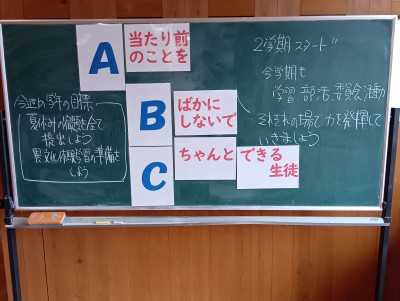 A
当たり前
のことを
B
ばかに
しないで
C
ちゃんと
できる
生徒
今週の学年の目標
夏休みの宿題を全て
提出しよう
異文化体験学習の準備を
しよう
2学期スタート!!
今学期も
学習 部活 委員会活動
それぞれの場で力を発揮して
いきましょう